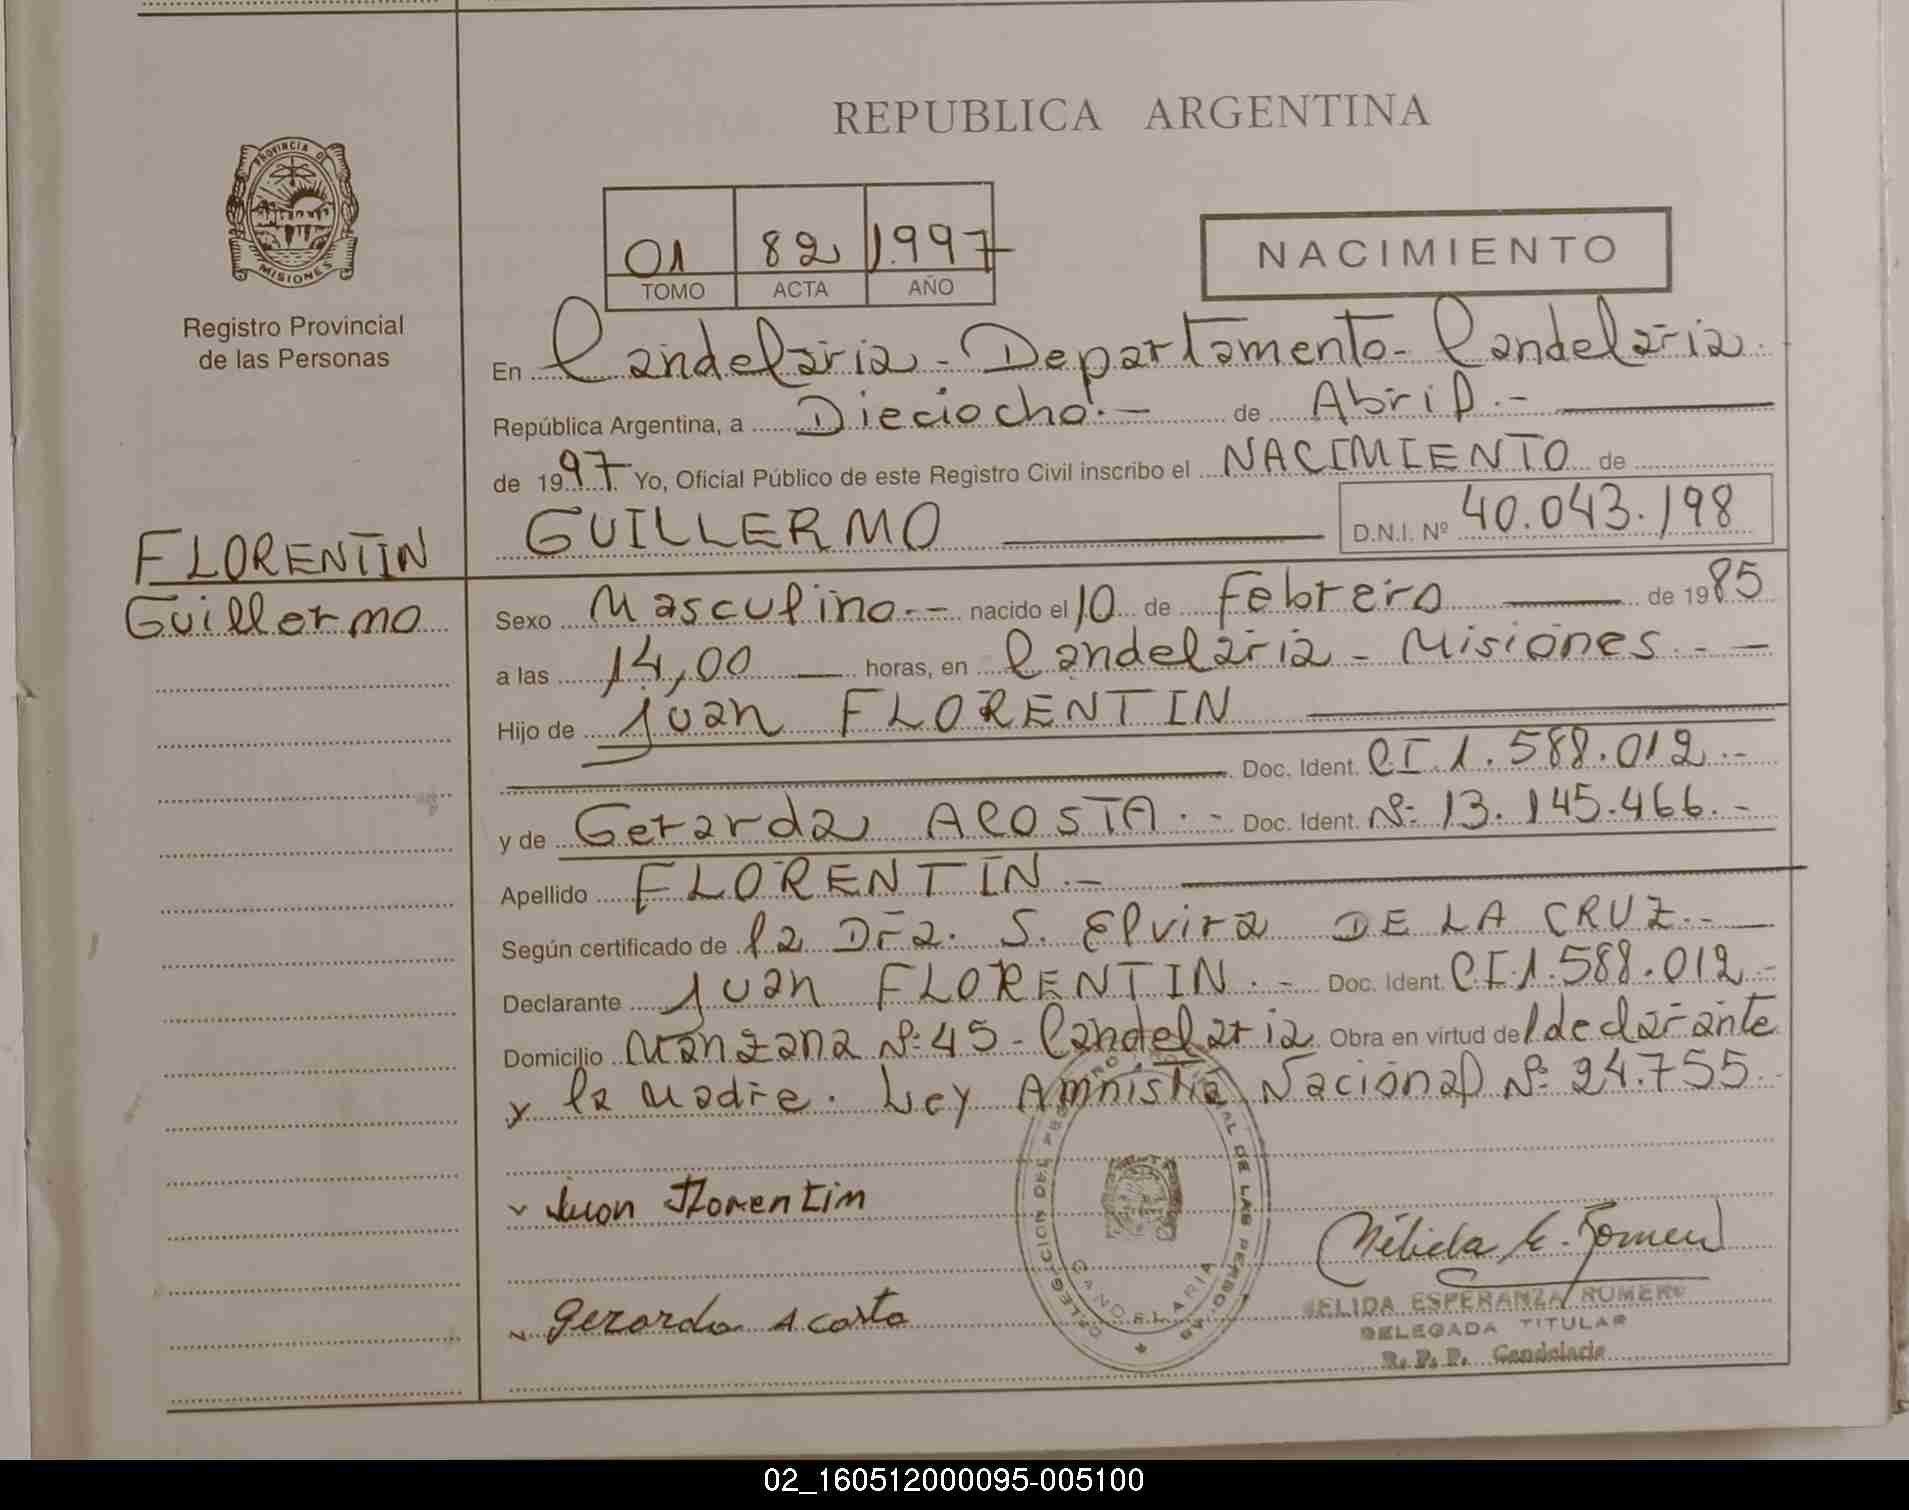 REPUBLICA ARGENTINA
PROVINCIA D
MISIONES
Registro Provincial
de las Personas
01 82 1.997
TOMO ACTA AÑO
NACIMIENTO
En Candelaria - Departamento - Candelaria.
República Argentina, a Dieciocho.- de Abril.-
de 1997 Yo, Oficial Público de este Registro Civil inscribo el NACIMIENTO de
GUILLERMO D.N.I. Nº 40.043.198
FLORENTIN
Guillermo
Sexo Masculino.- nacido el 10 de Febrero de 1985
a las 14,00 horas, en Candelaria - Misiones.-
Hijo de Juan FLORENTIN
Doc. Ident. CI.1.588.012.-
y de Gerarda ACOSTA.- Doc. Ident. Nº 13.145.466.-
Apellido FLORENTIN.-
Según certificado de la Dra. S. Elvira DE LA CRUZ.-
Declarante Juan FLORENTIN.- Doc. Ident. CI.1.588.012.-
Domicilio Manzana Nº 45 - Candelaria Obra en virtud del declarante
y la Madre. Ley Amnistia Nacional Nº 24.755.
Juan Florentin
Gerarda Acosta
DELEGACION DEL REGISTRO PROVINCIAL DE LAS PERSONAS
CANDELARIA
Nélida E. Romero
NELIDA ESPERANZA ROMERO
DELEGADA TITULAR
R. P. P. Candelaria
02_160512000095-005100